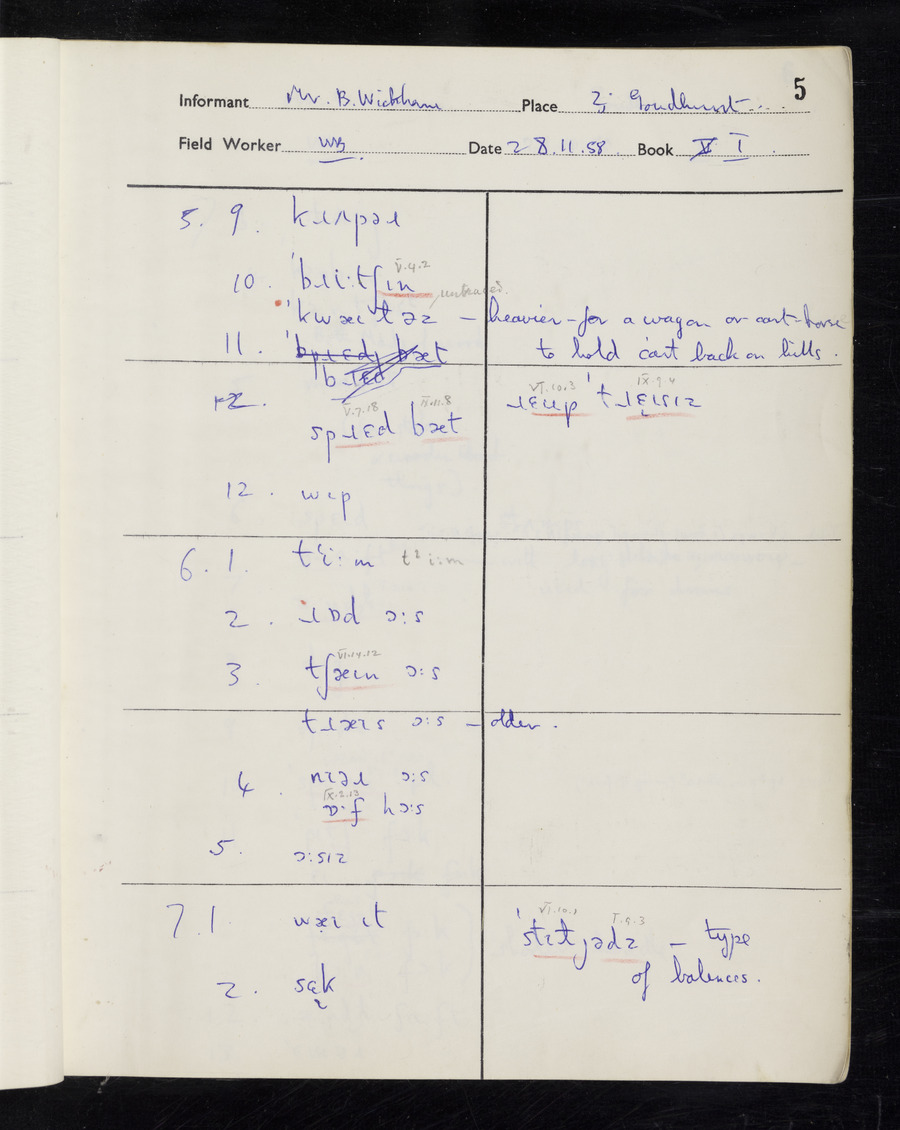 5
Informant Mr. B. Wickham Place 3; Goudhurst
Field Worker WB Date 28.11.58 Book V I
5. 9. kɹʌpəɹ
10. ˈbɹiːtʃɪn V.4.2 untraced.
ˈkwæɪtəz – heavier – for a wagon or cart-horse to hold cart back on hills.
11. ˈbɹɛd bæt
12.
spɹɛd bæt V.7.18 IX.11.8
ɹɛup ˈtɹɛɪsɪz VI.10.3 IX.9.4
12. wɪp
6. 1. tᵊiːm tᵊiːm
2. ɹɒd ɔːs
3. tʃæɪn ɔːs VI.14.12
tɹæɪs ɔːs – older.
4. nɪəɹ ɔːs
ɒːf hɔːs IX.2.13
5. ɔːsɪz
7. 1. wæɪ ɪt
ˈstɪtjədz VI.10.1 I.9.3 – type
of balances.
2. sæk